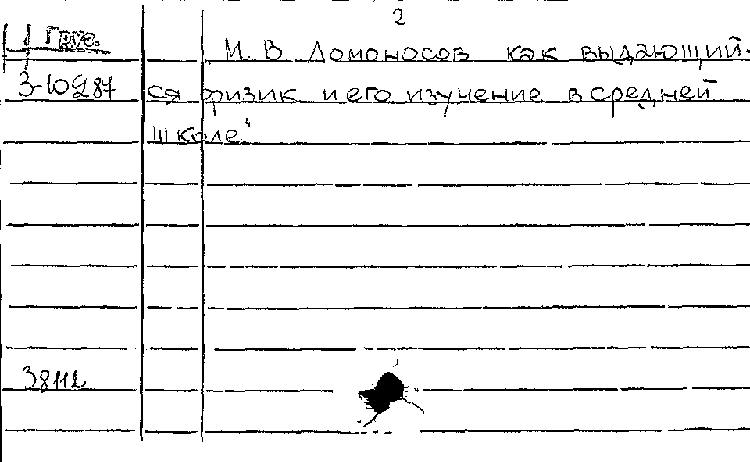 2
Груз.
М. В. Ломоносов как выдающий-
3-10287
ся физик и его изучение в средней
школе"
38112